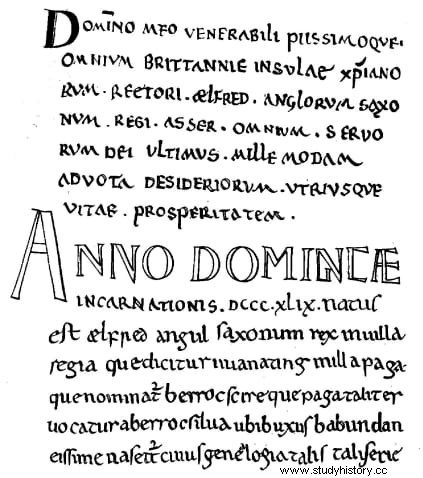 DOMINO MEO VENERABILI PIISSIMOQUE.
OMNIUM BRITTANNIE INSULAE XPIANO
RUM. RECTORI. ÆLFRED. ANGLORUM SAXO
NUM. REGI. ASSER. OMNIUM. SERVO
RUM DEI ULTIMUS. MILLE MODAM
ADVOTA DESIDERIORUM. UTRIUSQUE
VITAE. PROSPERITATEM.
ANNO DOMINICÆ
INCARNATIONIS. DCCC.XLIX. NATUS
est ælfred angul saxonum rex in uilla
regia quedicitur uuanating milla paga
que nominat berrocscire que paga taliter
uocatur aberroc silua ubi buxus habundan
tissime nascit cuius genelogia talis tali serie
www.studyhistory.cc